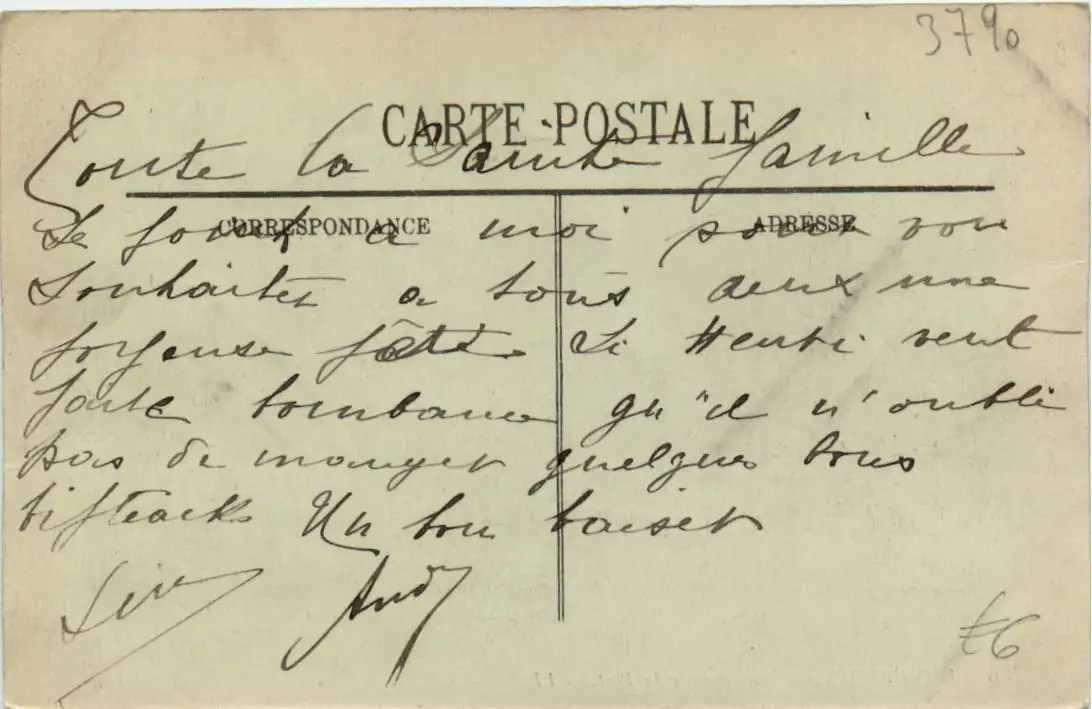 3790
CARTE-POSTALE
Toute la Sainte famille
CORRESPONDANCE
ADRESSE
Se joint a moi pour vous
souhaiter a tous deux une
joyeuse fête. Si Henri veut
faire bombance qu'il n'oublie
pas de manger quelques bons
biftearks Un bon baiser
And
£6